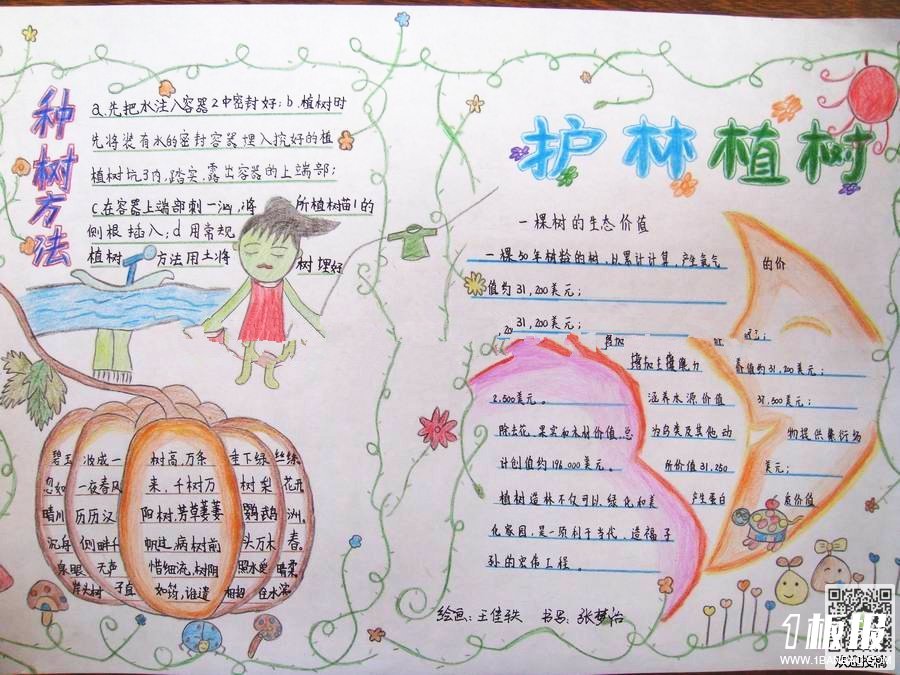 种树方法
a.先把水注入容器2中密封好;b.植树时
先将装有水的密封容器埋入挖好的植
植树坑3内,踏实,露出容器的上端部;
c.在容器上端部刺一洞,将 所植树苗1的
侧根插入;d用常规
植树 方法用土将 树埋好
碧玉 妆成一 树高,万条 垂下绿 丝绦.
忽如 一夜春风 来,千树万 树梨 花开
晴川 历历汉 阳树,芳草萋萋 鹦鹉 洲。
沉舟 侧畔千 帆过,病树前 头万木 春。
泉眼 无声 惜细流,树阴 照水爱 晴柔
护林植树
一棵树的生态价值
一棵50年树龄的树,以累计计算,产生氧气 的价
值约31,200美元;
31,200美元;
增加土壤肥力 养值约31,200美元;
2,500美元。 涵养水源价值 37,500美元;
除去花、果实和木材价值,总 为鸟类及其他动 物提供繁衍场
计创值约196,000美元。 所价值31,250 美元;
植树造林不仅可以绿化和美 产生蛋白 质价值
化家园,是一项利于当代、造福子
孙的宏伟工程。
绘画:王佳轶 书写:张梦怡
1板报
WWW.1BANBAO.COM
欢迎投稿